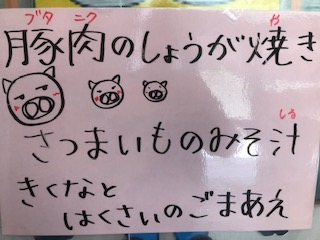 ブタ ニク や
豚肉のしょうが焼き
しる
さつまいものみそ汁
きくなと
はくさいのごまあえ